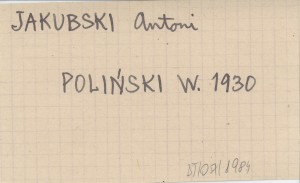 JAKUBSKI Antoni
POLIŃSKI W. 1930
/1984